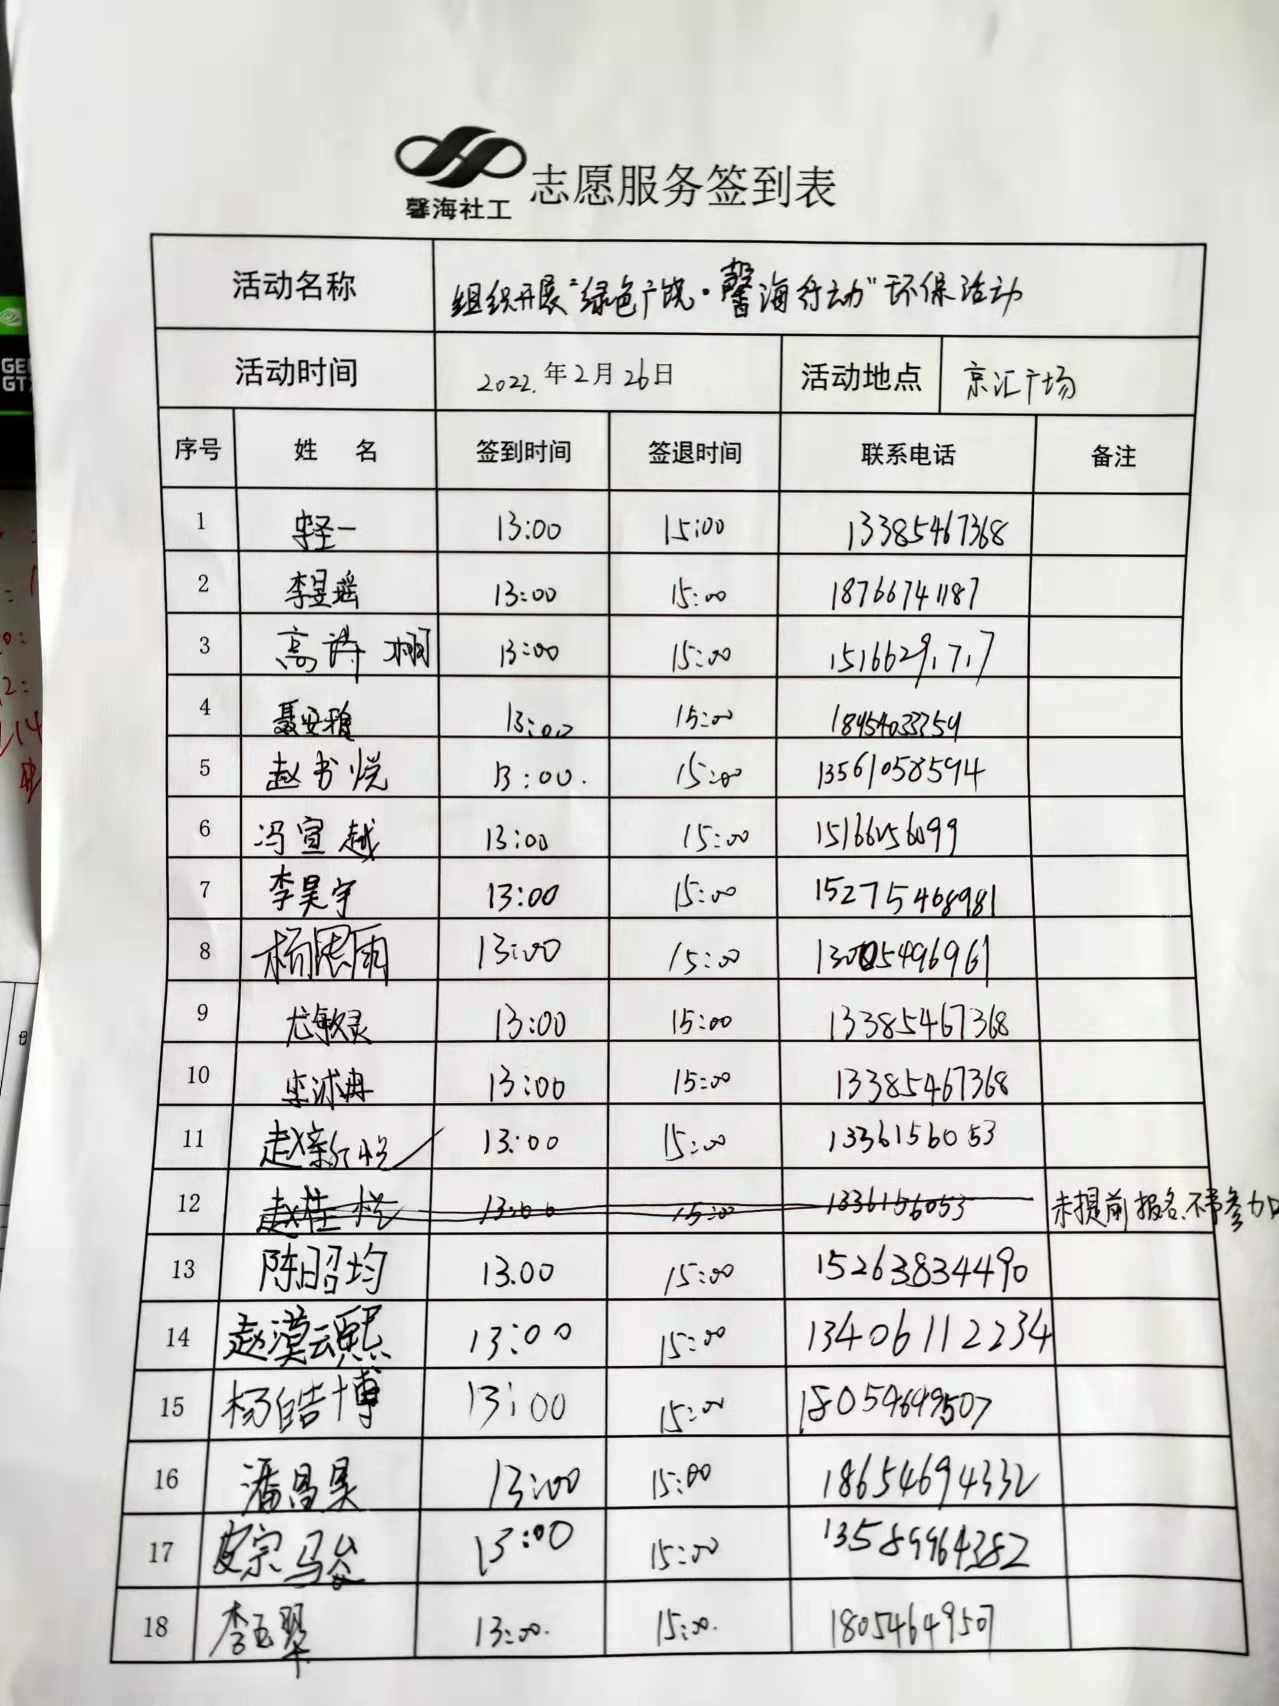 馨海社工 志愿服务签到表
活动名称 组织开展"绿色广饶·馨海行动"环保活动
活动时间 2022.年2月26日 活动地点 京汇广场
序号 姓 名 签到时间 签退时间 联系电话 备注
1 13:00 15:00 13385467368
2 李昱瑶 13:00 15:00 18766741187
3 高诗栩 13:00 15:00
4 聂安雅 13:00 15:00 18454033259
5 赵书悦 13:00. 15:00 13561058594
6 冯宣越 13:00 15:00 15166256099
7 李昊宇 13:00 15:00 15275468981
8 杨恩雨 13:00 15:00 13005496961
9 尤敏灵 13:00 15:00 13385467368
10 李沛冉 13:00 15:00 13385467368
11 赵新悦 13:00 15:00 13361556053
12 赵桂悦 13:00 15:00 未提前报名、不予参加
13 陈昭均 13.00 15:00 15263834490
14 赵漠云熙 13:00 15:00 13406112234
15 杨皓博 13:00 15:00 18054649507
16 潘昌昊 13:00 15:00 18654694332
17 13:00 15:00 13589964382
18 李玉翠 13:00. 15:00. 18054649507
GE
GT